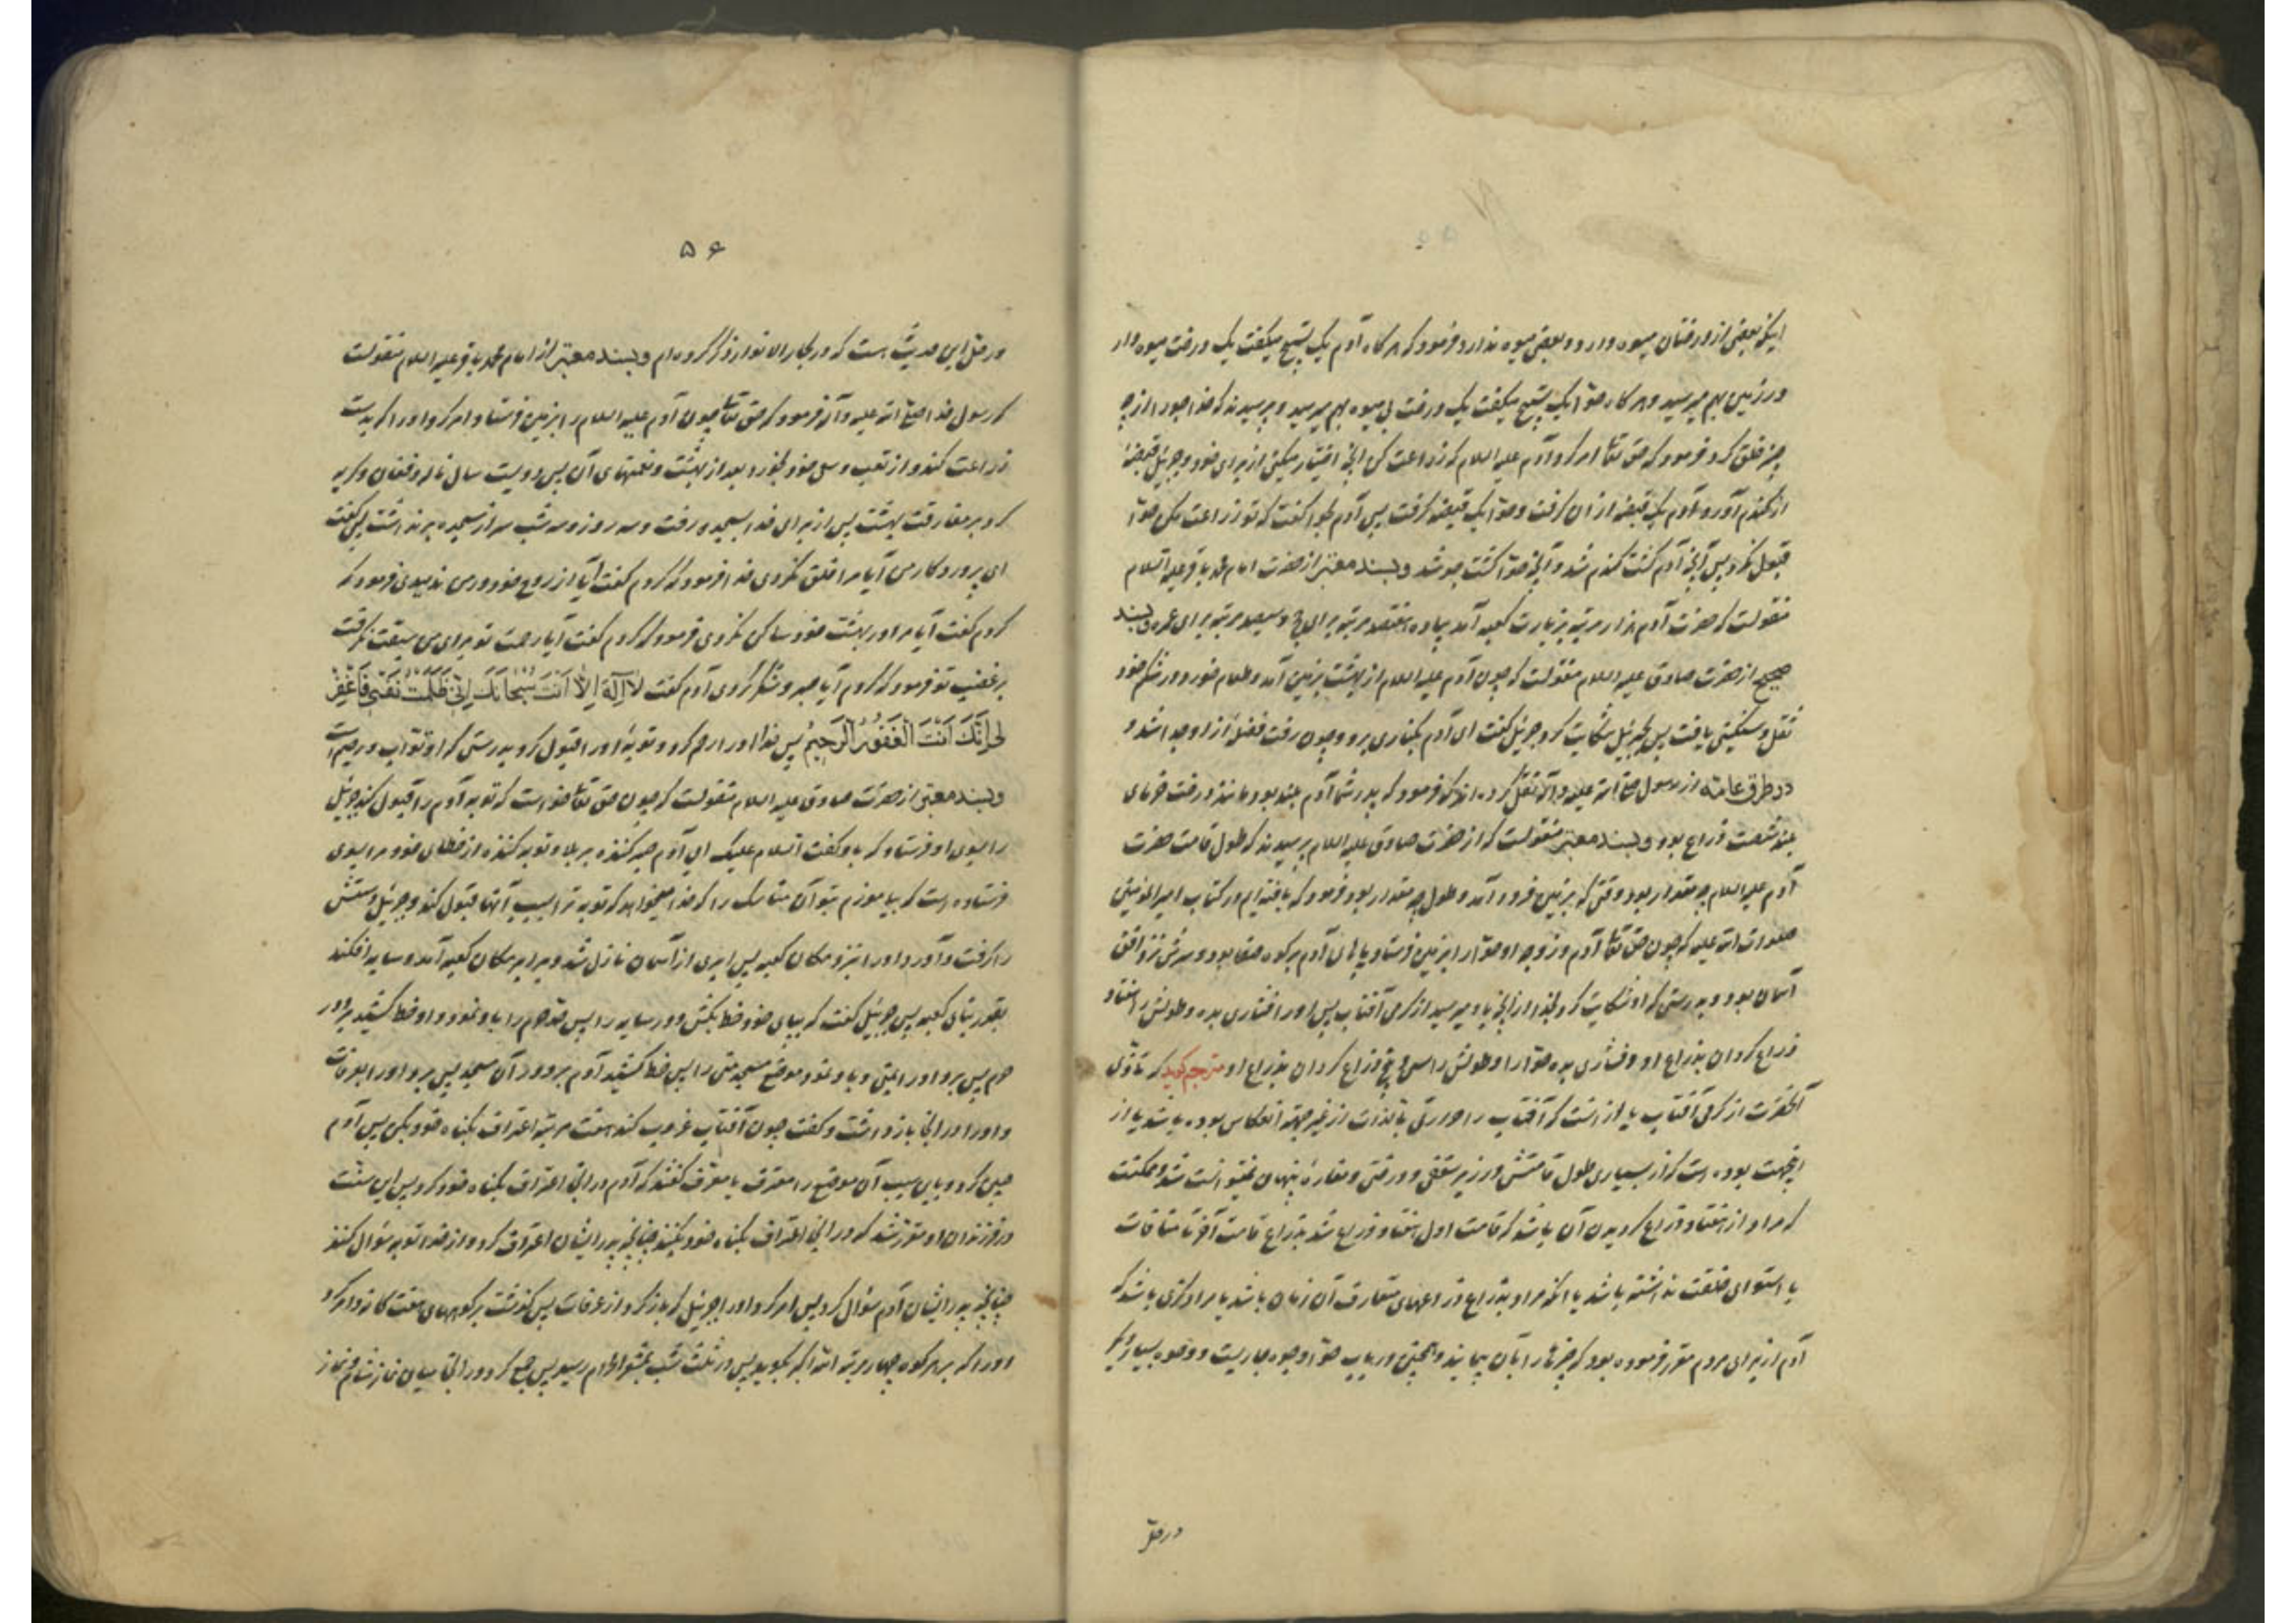 اینکه بعضی از درختان میوه دارد و بعضی میوه ندارد فرمود که هرگاه آدم یک تسبیح میگفت یک درخت میوه دار
در زمین بهم میرسید و هرگاه حوّا یک تسبیح میگفت یک درخت بی میوه بهم میرسید و پرسیدند که خدا جو را از چه
چیز خلق کرد فرمود که حق تعالی امر کرد آدم علیه السلام که زراعت کن آنچه اختیار میکنی از برای خود و جبرئیل قبضهٔ
از گندم آورد و آدم یک قبضه از آن گرفت و حوّا یک قبضه گرفت پس آدم بحوا گفت که تو زراعت مکن حوّا
قبول نکرد پس آنچه آدم کشت گندم شد و آنچه حوّا کشت جو شد و بسند معتبر از حضرت امام محمد باقر علیه السلام
منقولست که حضرت آدم هزار مرتبه بزیارت کعبه آمد پیاده هفتصد مرتبه برای حج و سیصد مرتبه برای عمره و بسند
صحیح از حضرت صادق علیه السلام منقولست که چون آدم علیه السلام از بهشت بزمین آمد و طعام خورد در شکم خود
ثقل و سنگینی یافت پس بجبرئیل شکایت کرد جبرئیل گفت ای آدم بکناری برو و چون رفت فضله از او جدا شد و
در طرق عامّه از رسول صلی الله علیه و آله نقل کرده‌اند که فرمود که پدر شما آدم بلند بود مانند درخت خرمای
بلند شصت ذراع بود و بسند معتبر منقولست که از حضرت صادق علیه السلام پرسیدند که طول قامت حضرت
آدم علیه السلام چه مقدار بود وقتی که بزمین فرود آمد و طول چه مقدار بود فرمود که یافته‌ایم در کتاب امیر المؤمنین
صلوات الله علیه که چون حق تعالی آدم و زوجه او حوّا را بزمین فرستاد پاهای آدم بر کوه صفا بود و سرش نزد افق
آسمان بود و بدرستی که او شکایت کرد بخدا از آنچه باو میرسید از گرمی آفتاب پس او را فشاری بده و طولش را هفتاد
ذراع گردان بذراع او و فشاری بده حوّا را و طولش را سی و پنج ذراع گردان بذراع او مترجم گوید که تاذّی
آنحضرت از گرمی آفتاب یا از آنست که آفتاب را حرارتی بالذات از غیر جهة انعکاس بوده باشد یا از
اینجهت بوده است که از بسیاری طول قامتش در زیر سقفی و درختی و مغارهٔ پنهان نمیتوانست شد و ممکنست
که مراد از هفتاد ذراع گردیدن آن باشد که قامت اول هفتاد ذراع شد بذراع قامت آخر تا منافات
با استوای خلقت نداشته باشد یا آنکه مراد بذراع ذراعهای متعارف آن زمان باشد یا مراد گزی باشد که
آدم از برای مردم مقرر فرموده بود که چیزها را بآن پیمایند و همچنین در باب حوّا وجوه جاریست و وجوه بسیار دیگر
در حلّ
۵۶
در حلّ این حدیث هست که در بحار الانوار ذکر کرده‌ام و بسند معتبر از امام محمد باقر علیه السلام منقولست
که رسول خدا صلی الله علیه و آله فرمود که حق تعالی چون آدم علیه السلام را بزمین فرستاد امر کرد او را که بدست
زراعت کند و از تعب و سعی خود بخورد بعد از بهشت و نعمتهای آن پس دویست سال ناله و فغان و گریه
کرد بر مفارقت بهشت پس از برای خدا بسجده رفت و سه روز و سه شب سر از سجده برنداشت پس گفت
ای پروردگار من آیا مرا خلق نکردی خدا فرمود که کردم گفت آیا از روح خود در من ندمیدی فرمود که
کردم گفت آیا مرا در بهشت خود ساکن نکردی فرمود که کردم گفت آیا رحمت تو برای من سبقت نگرفت
بر غضب تو فرمود که کردم آیا صبر و شکر کردی آدم گفت لَا اِلٰهَ اِلَّا اَنْتَ سُبْحَانَكَ اِنّی ظَلَمْتُ نَفْسِی فَاغْفِرْ
لِی اِنَّكَ اَنْتَ الْغَفُورُ الرَّحِیمُ پس خدا او را رحم کرد و توبهٔ او را قبول کرد بدرستی که او توّاب و رحیم است
و بسند معتبر از حضرت صادق علیه السلام منقولست که چون حق تعالی خواست که توبه آدم را قبول کند جبرئیل
را بسوی او فرستاد که باو گفت السلام علیک ای آدم صبر کننده بر بلا و توبه کننده از خطای خود مرا بسوی
فرستاده است که بیاموزم بتو آن مناسک را که خدا میخواهد که توبه ترا بسبب آنها قبول کند و جبرئیل دستش
را گرفت و آورد او را نزد مکان کعبه پس ابری از آسمان نازل شد و برابر مکان کعبه آمد و سایه افکند
بقدر بنای کعبه پس جبرئیل گفت که بپای خود خط بکش دور سایه را پس حدّ حرم را باو نمود و او خط کشید بر دور
حرم پس برد او را بمنی و باو نمود موضع مسجد منی را پس خط کشید آدم بر دور آن مسجد پس برد او را بعرفات
و او را در آنجا بازداشت و گفت چون آفتاب غروب کند هفت مرتبه اعتراف بگناه خود بکن پس آدم
چنین کرد و باین سبب آن موضع را معترف یا معرّف گفتند که آدم در آنجا اعتراف بگناه خود کرد پس این سنّت
در فرزندان او مقرر شد که در آنجا اعتراف بگناه خود بکنند چنانچه پدر ایشان اعتراف کرد و از خدا توبه سؤال کنند
چنانچه پدر ایشان آدم سؤال کرد پس امر کرد او را جبرئیل که باز گردد از عرفات پس گذشت بر کوههای هفت گانه و امر کرد
او را که بر هر کوه چهار مرتبه الله اکبر بگوید پس در ثلث شب بمشعر الحرام رسید پس جمع کرد در آنجا میان نماز شام و نماز